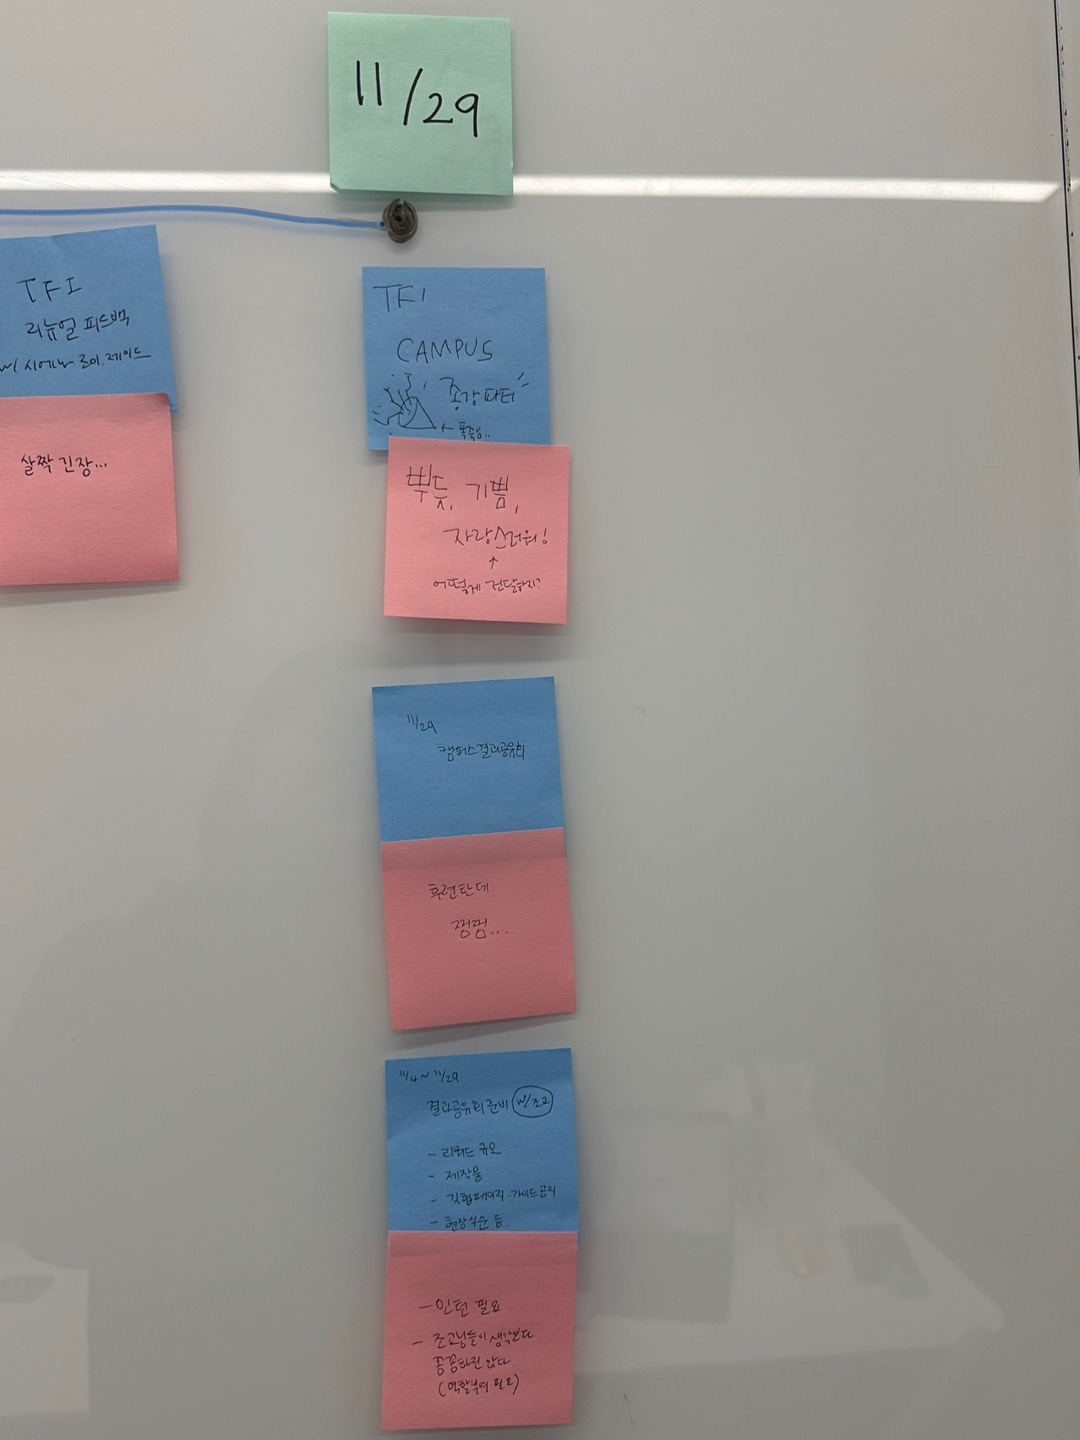 11/29
TFI
리뉴얼 피드백
w/ 시에나 로이.제이드
살짝 긴장...
TFI
CAMPUS
종강파티
← 폭죽임..
뿌듯, 기쁨,
자랑스러워!
↑
어떻게 전달하지?
11/29
캠퍼스결과공유회
후련한데
찜찜...
11/4 ~ 11/29
결과공유회준비 w/조교
- 리워드 규모
- 제작물
- 깃헙페이지 가이드공지
- 현장석순 등
- 인턴 필요.
- 조교님들이 생각보다
꼼꼼하진 않다.
(역할부여 필요)